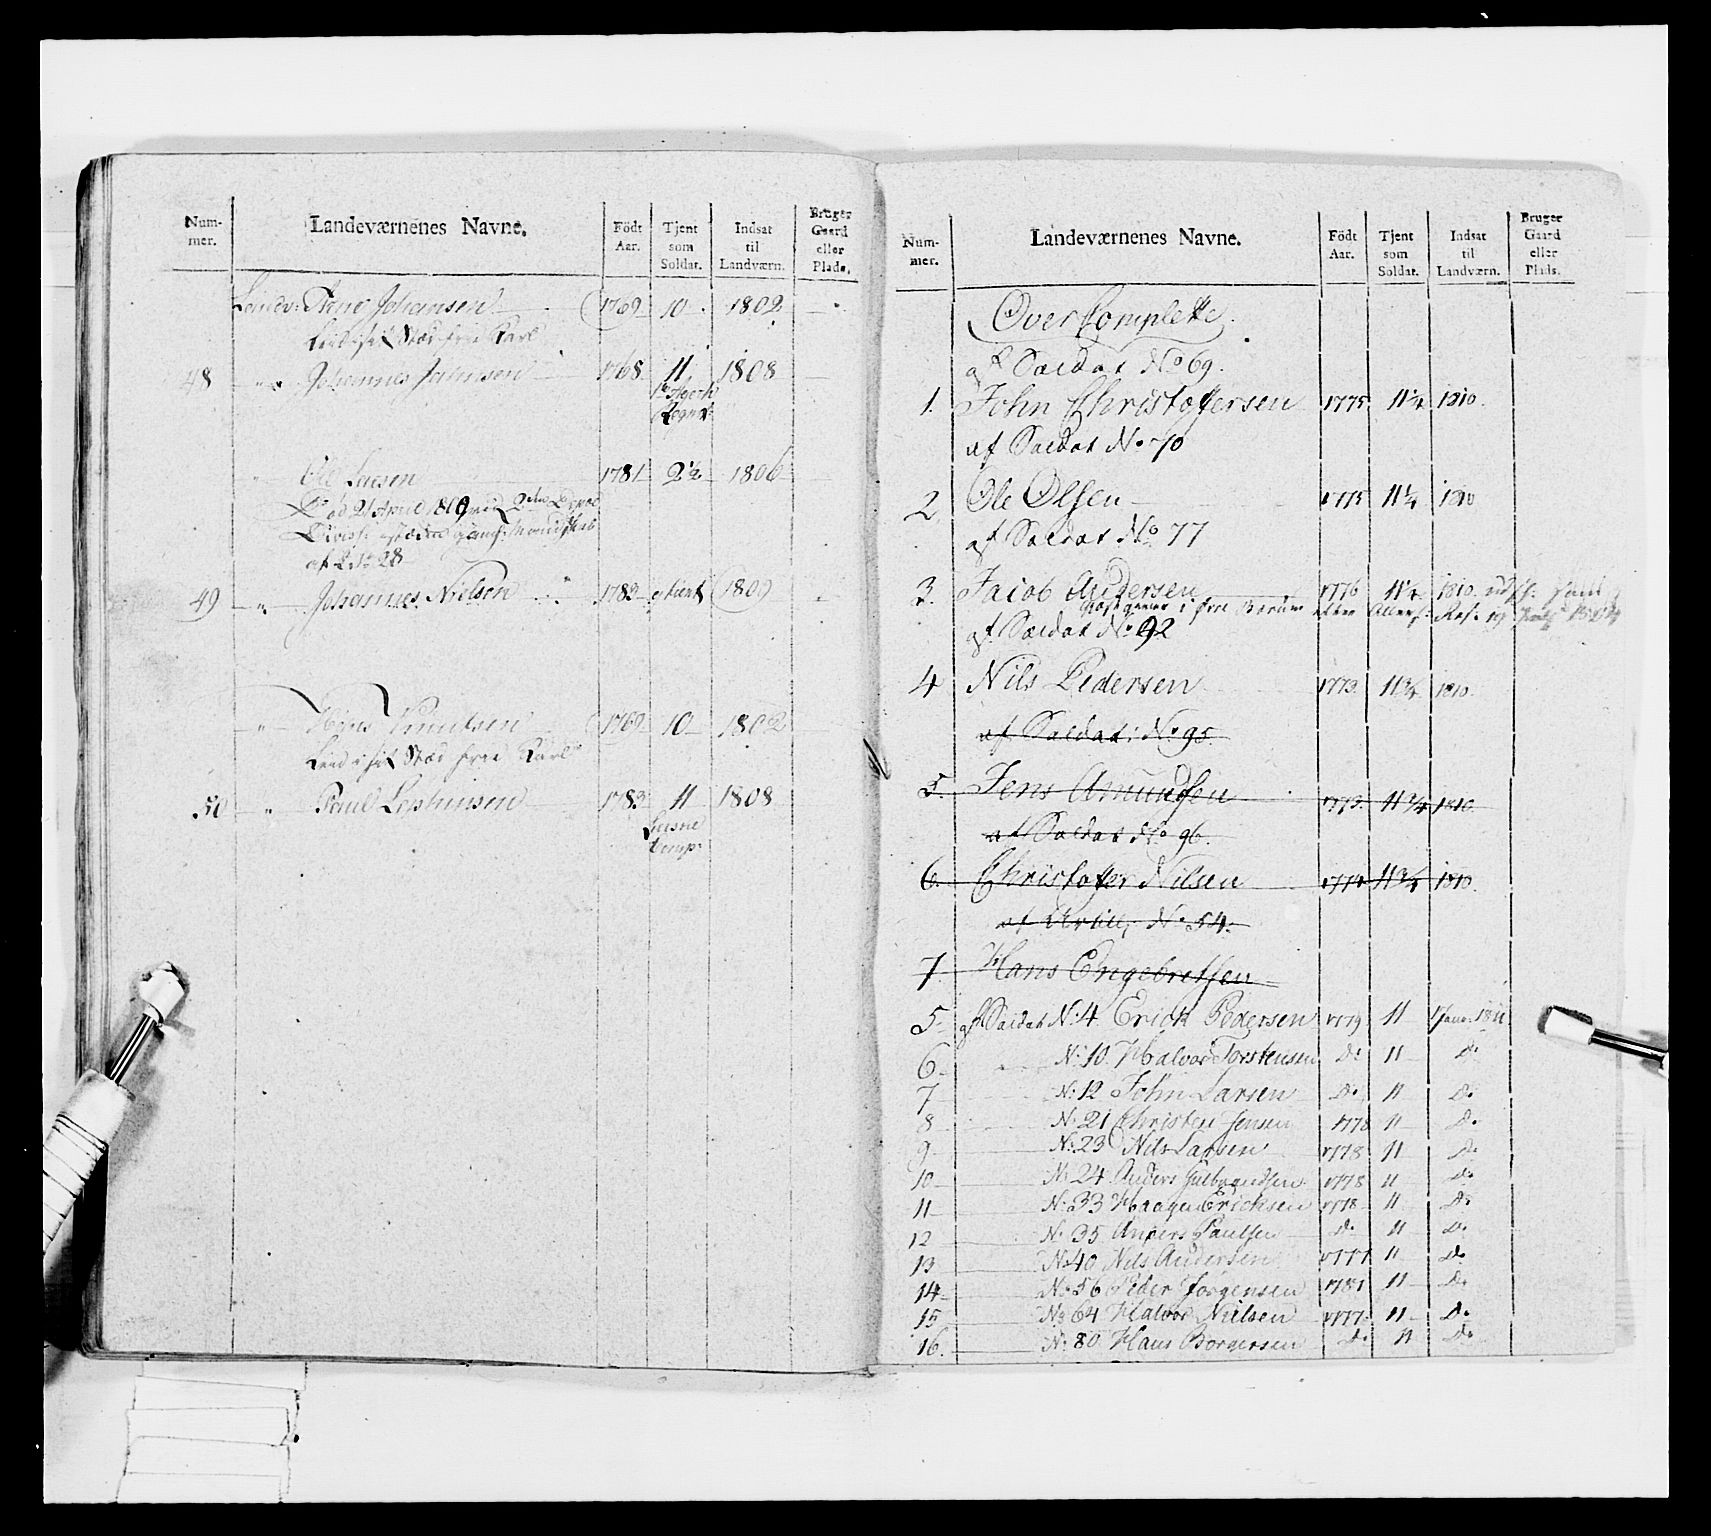 Num-
mer.
Landeværnenes Navne.
Födt
Aar.
Tjent
som
Soldat.
Indsat
til
Landværn.
Bruger
Gaard
eller
Plads.
Landv: Arne Johansen 1769 10 1802
Karl
48 Johannes Jahnsen 1768 11 1808
Ole Larsen 1781 2½ 1806
Död 21 April 1809 2den
No 28
49 Johannes Nielsen 1783 1809
Hans Knutsen 1769 10 1802
Karl
50 Paul 1783 11 1808
Comp:
Num-
mer.
Landeværnenes Navne.
Födt
Aar.
Tjent
som
Soldat.
Indsat
til
Landværn.
Bruger
Gaard
eller
Plads.
Over Complette
af Saldat No 69.
1. John Christoffersen 1775 11¼ 1810.
af Saldat No 70
2 Ole Olsen 1775 11¼ 1810
af Saldat No 77
3. Jacob Andersen 1776 11¼ 1810.
af Saldat No 92
4 Nils Pedersen 1773. 11¾ 1810.
af Saldat: No 95.
5. Jens Amundsen 1773. 11¾ 1810
af Saldat No 96.
6. Christoffer Nilsen 1774 11¾ 1810.
af Artill; No 54.
7. Hans Engebretsen
5 af Saldat N: 4 Erick Pedersen 1779 11 1 Janr: 1811
6 N: 10 Halvor Torstensen Do 11 Do
7 N: 12 John Larsen Do 11 Do
8 N: 21 Christen Jensen 1778 11 Do
9 N: 23 Nils Larsen 1778 11 Do
10 N: 24 Anders Gulbrandsen 1778 11 Do
11 N: 33 Haagen Ericksen 1778 11 Do
12 N: 35 Anders Paulsen Do 11 Do
13 No 40 Nils Andersen 1777 11 Do
14 No 56 Peder Jörgensen 1781 11 Do
15 No 64 Halvor Nielsen 1777 11 Do
16. N: 80 Hans Borgersen Do 11 Do